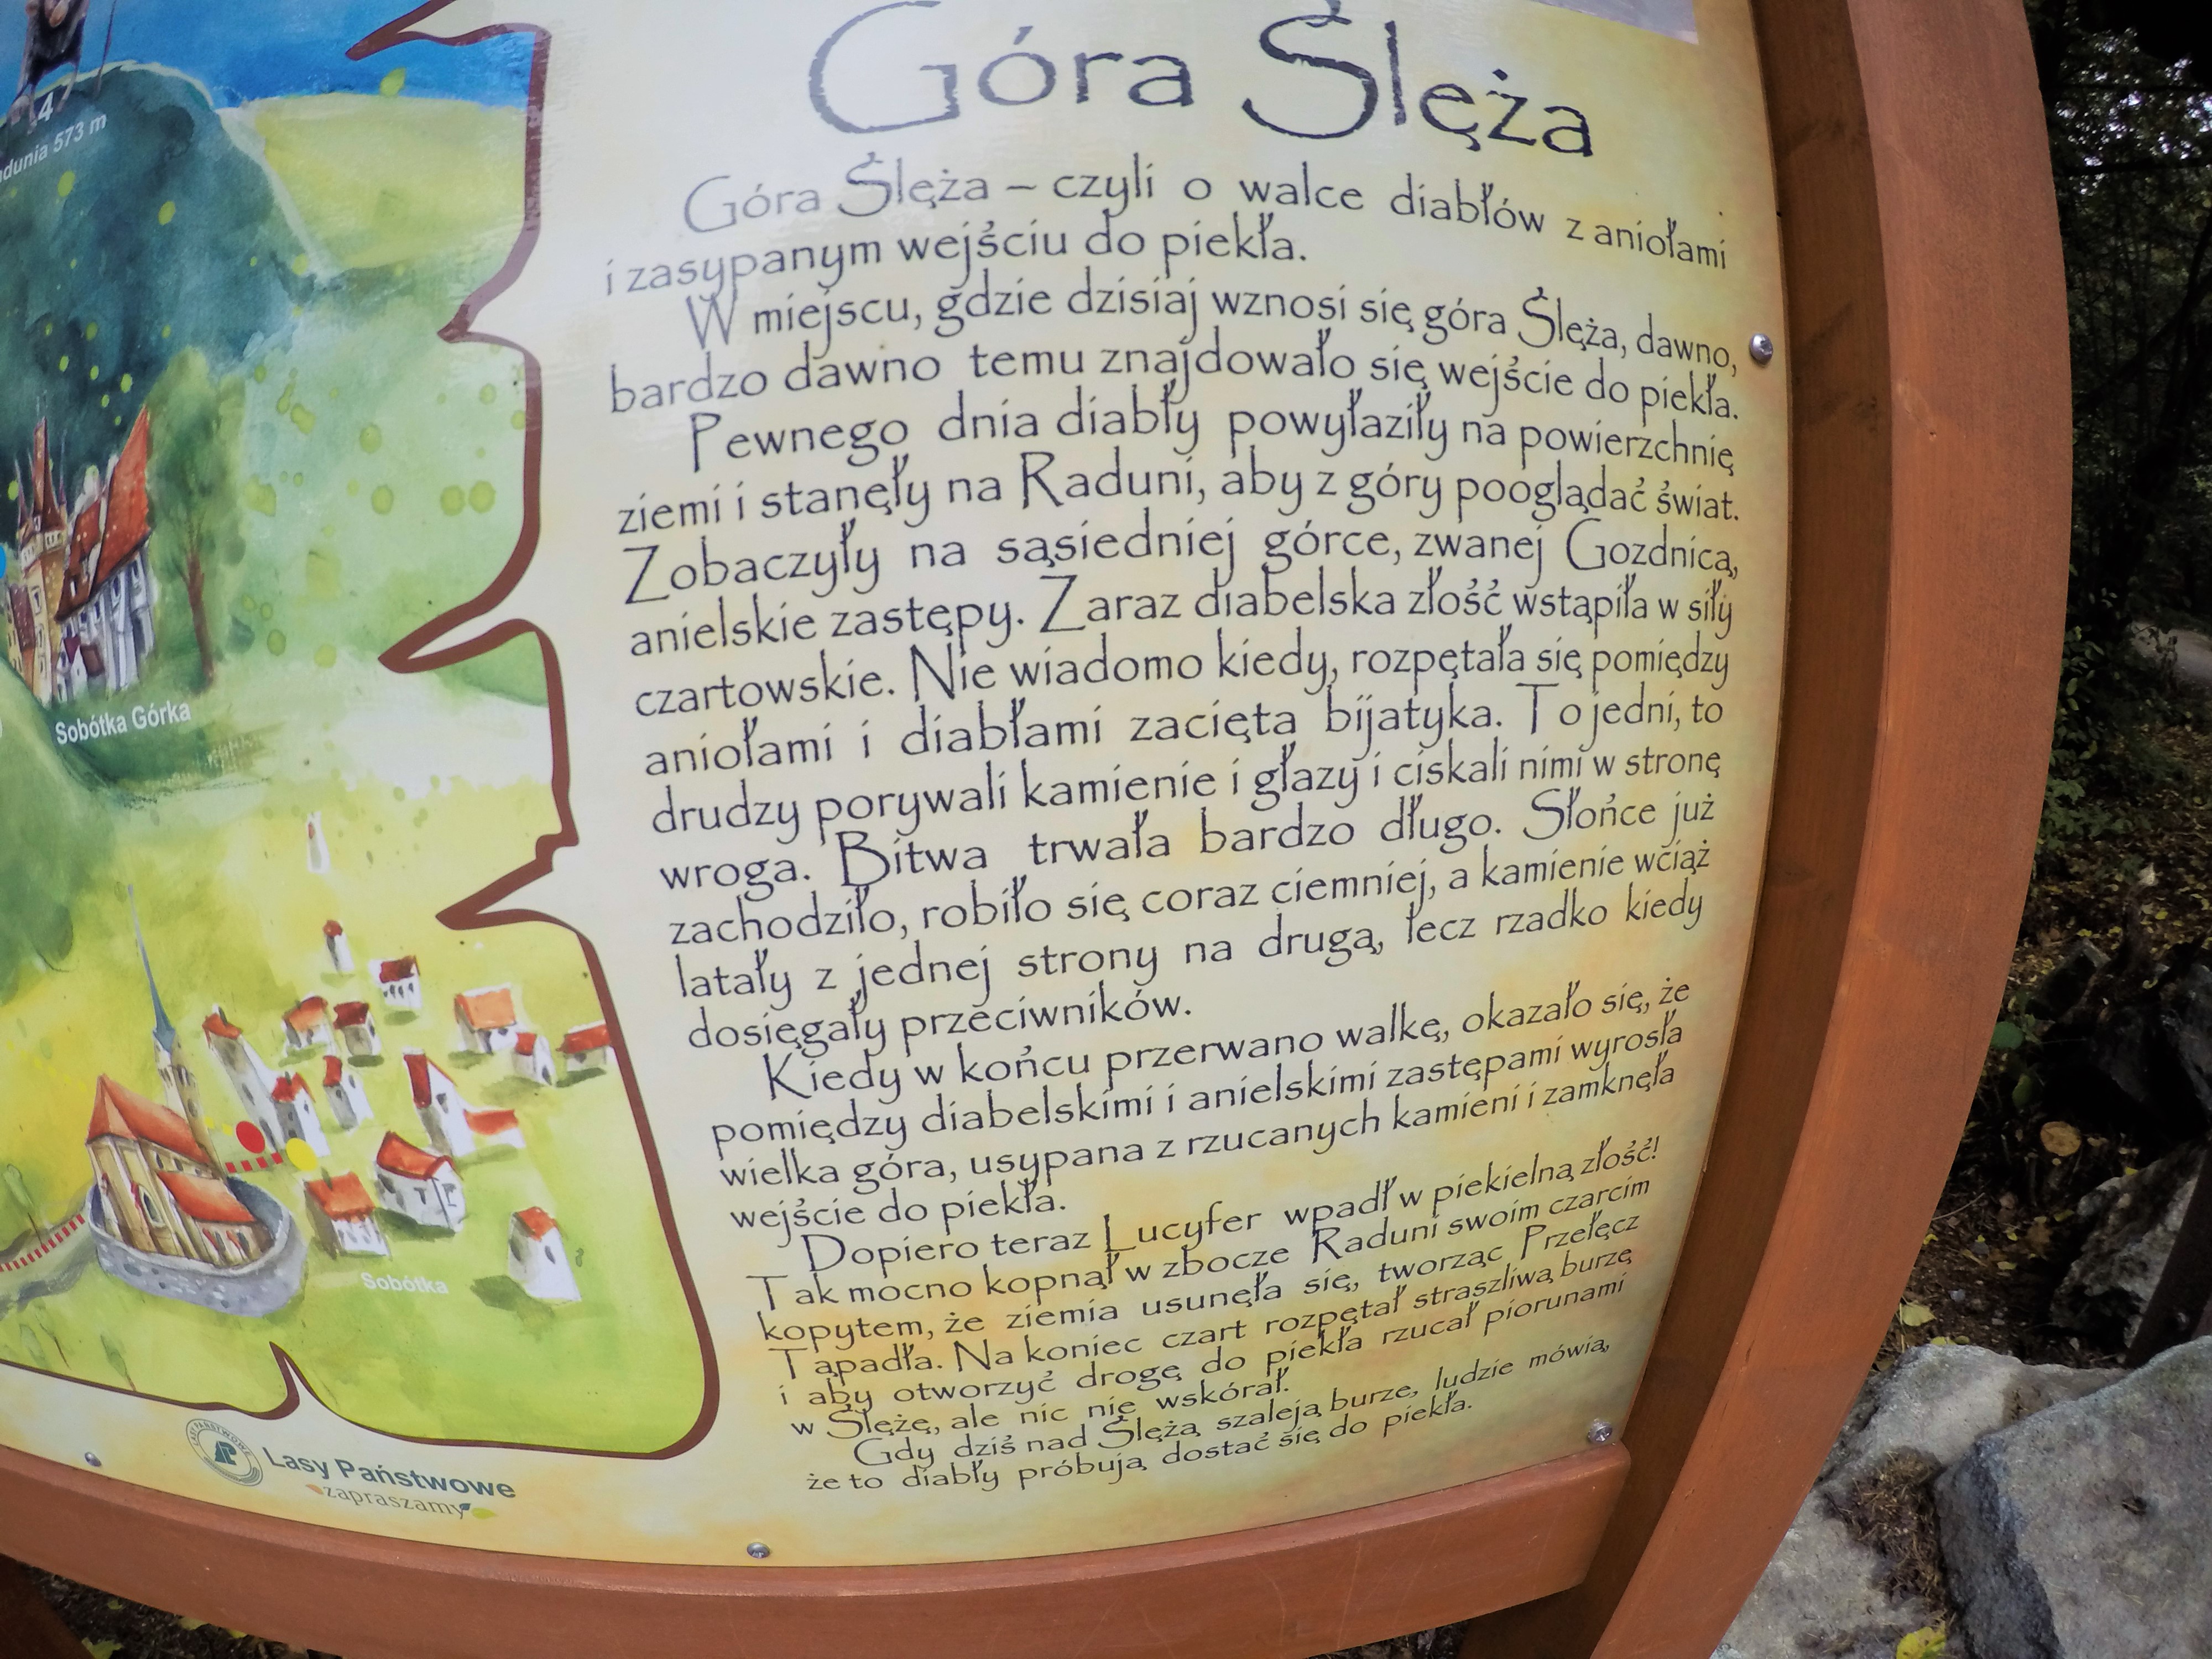 4
adunia 573 m
Sobótka Górka
Sobótka
Góra Ślęża
Góra Ślęża – czyli o walce diabłów z aniołami
i zasypanym wejściu do piekła.
W miejscu, gdzie dzisiaj wznosi się góra Ślęża, dawno,
bardzo dawno temu znajdowało się wejście do piekła.
Pewnego dnia diabły powyłaziły na powierzchnię
ziemi i stanęły na Raduni, aby z góry pooglądać świat.
Zobaczyły na sąsiedniej górce, zwanej Gozdnicą,
anielskie zastępy. Zaraz diabelska złość wstąpiła w siły
czartowskie. Nie wiadomo kiedy, rozpętała się pomiędzy
aniołami i diabłami zacięta bijatyka. To jedni, to
drudzy porywali kamienie i głazy i ciskali nimi w stronę
wroga. Bitwa trwała bardzo długo. Słońce już
zachodziło, robiło się coraz ciemniej, a kamienie wciąż
latały z jednej strony na drugą, łecz rzadko kiedy
dosięgały przeciwników.
Kiedy w końcu przerwano walkę, okazało się, że
pomiędzy diabelskimi i anielskimi zastępami wyrosła
wielka góra, usypana z rzucanych kamieni i zamknęła
wejście do piekła.
Dopiero teraz Lucyfer wpadł w piekielną złość!
Tak mocno kopnął w zbocze Raduni swoim czarcim
kopytem, że ziemia usunęła się, tworząc Przełęcz
Tąpadła. Na koniec czart rozpętał straszliwą burzę
i aby otworzyć drogę do piekła rzucał piorunami
w Ślężę, ale nic nie wskórał.
Gdy dziś nad Ślężą szaleją burze, ludzie mówią,
że to diabły próbują dostać się do piekła.
Lasy Państwowe
zapraszamy